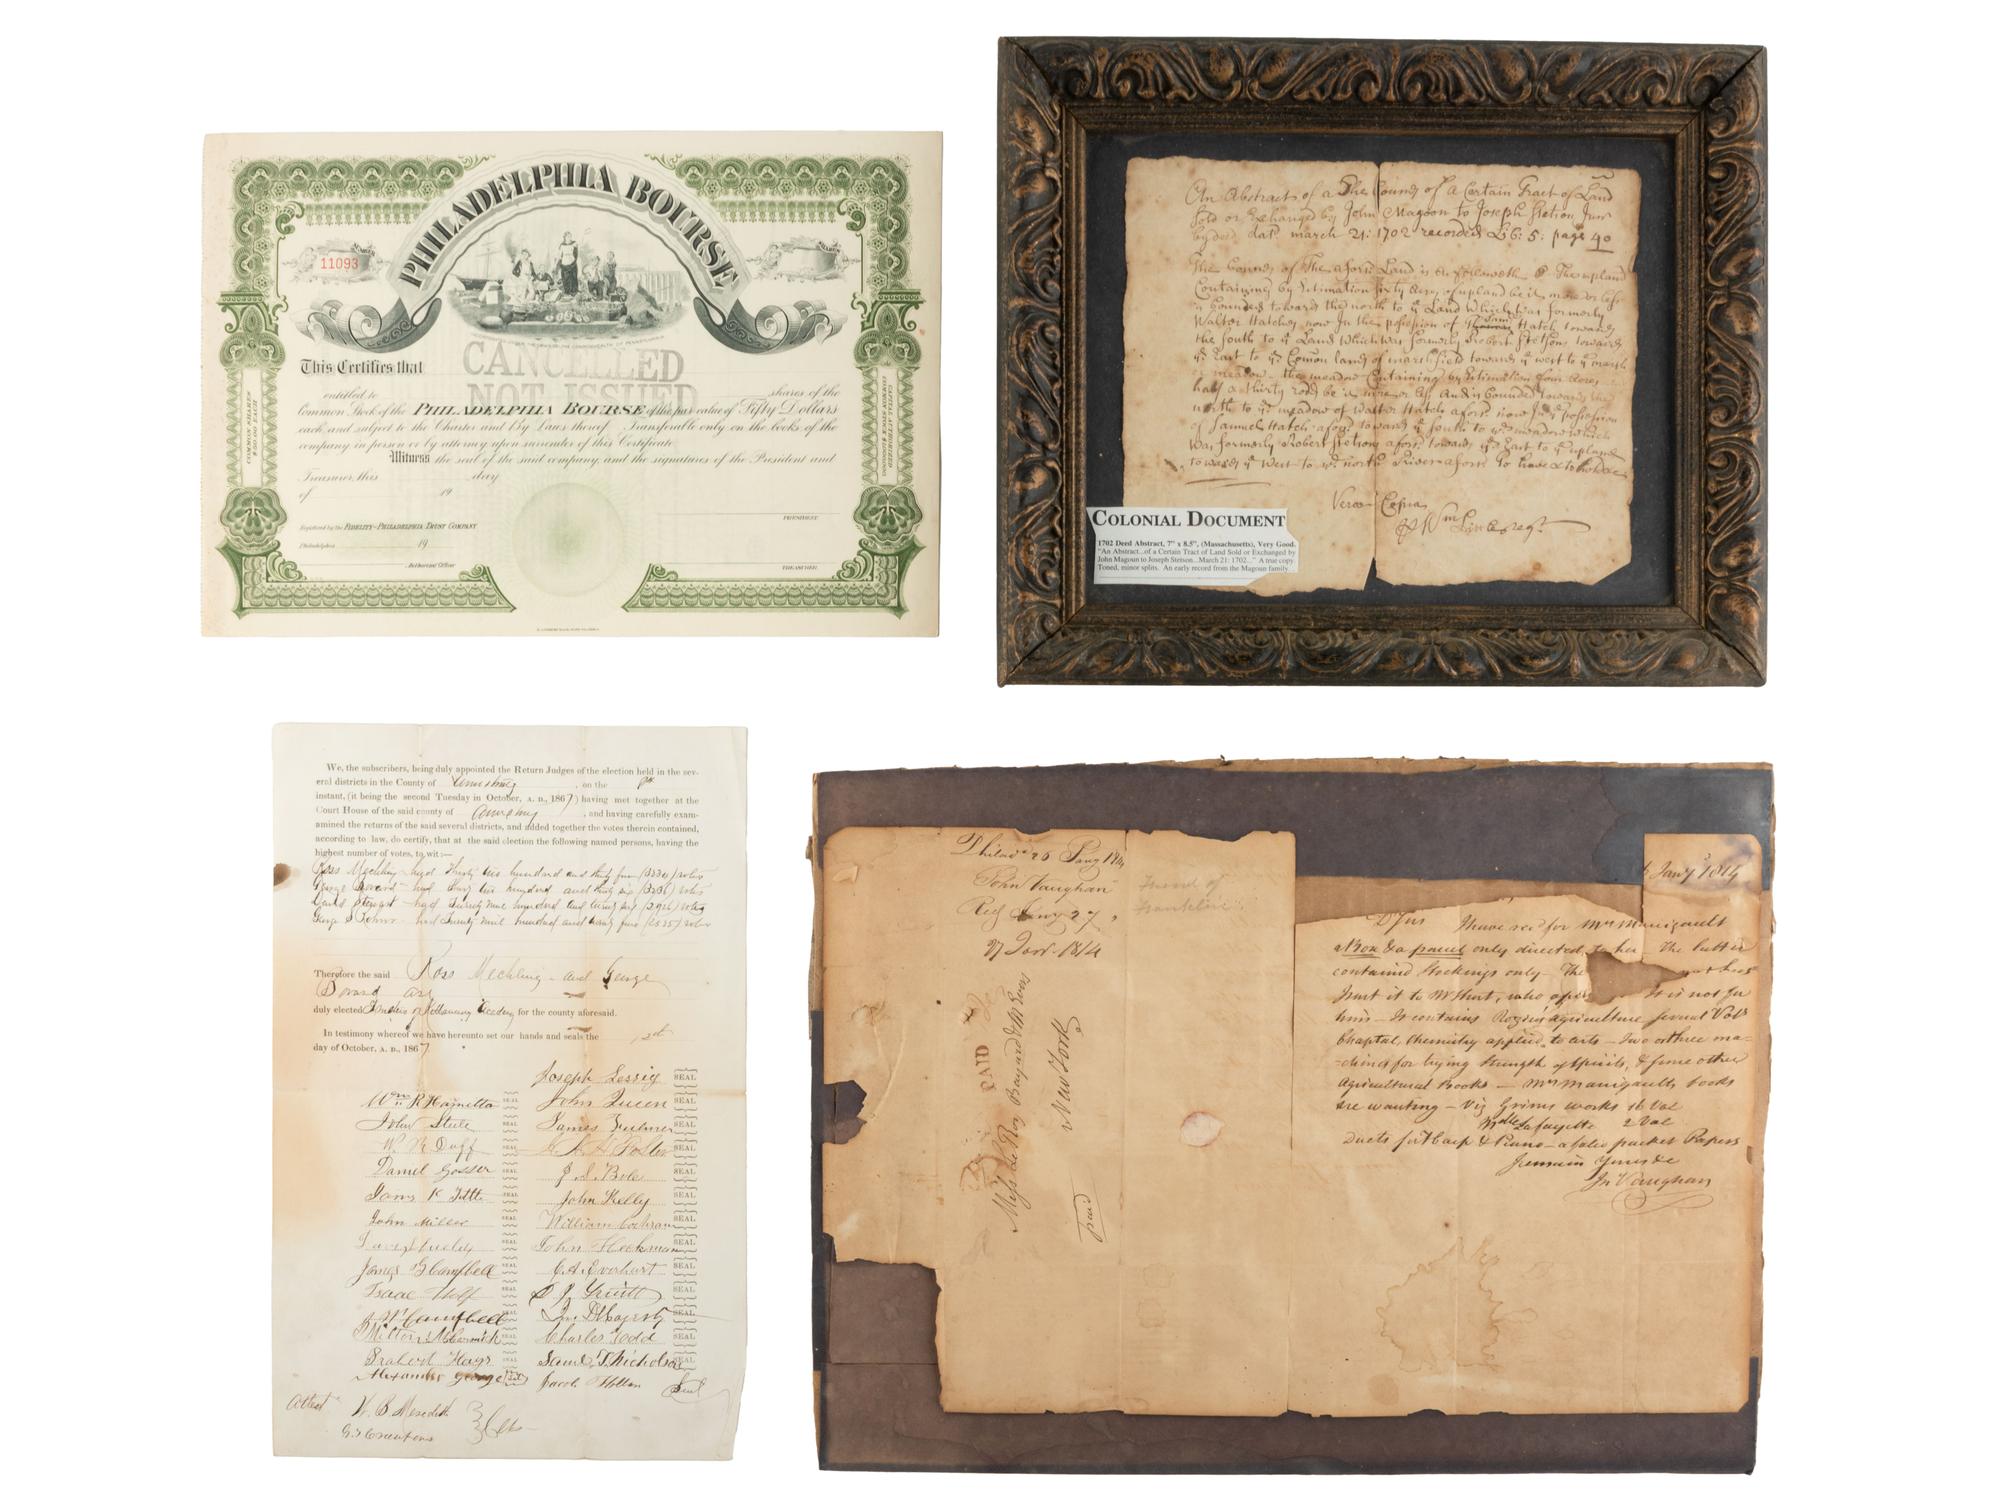 PHILADELPHIA BOURSE
11093
SHARES
SHARES
COMMONWEALTH OF PENNSYLVANIA
CANCELLED
NOT ISSUED
This Certifies that
entitled to shares of the
Common Stock of the PHILADELPHIA BOURSE of the par value of Fifty Dollars
each and subject to the Charter and By Laws thereof. Transferable only on the books of the
company in person or by attorney upon surrender of this Certificate
Witness the seal of the said company, and the signatures of the President and
Treasurer, this day
of 19
PRESIDENT
Registered by the FIDELITY-PHILADELPHIA TRUST COMPANY
Philadelphia 19
Authorized Officer
TREASURER
COMMON SHARES
$50.00 EACH
CAPITAL AUTHORIZED
COMMON STOCK
An Abstract of a The bounds of a Certain Tract of Land
Sold or Exchanged by John Magoon to Joseph Stetson Junr
by deed dat: march 21: 1702 recorded Lib: 5: page 40
The bounds of The aforsd Land is as followeth The upland
Containing by Estimation Sixty Acres of upland be it more or less
is bounded toward the north to ye Land Which was formerly
Walter Hatches now In the possession of Saml Hatch towards
the South to ye Land Which was formerly Robert Stetsons towards
ye East to ye Comon lands of marshfield towards ye west to ye marsh
or meadow - the meadow Containing by Estimation four Acres
half a thirty rods be it more or less And is bounded towards the
north to ye meadow of Walter Hatch aforsd now In ye possession
of Samuel Hatch aforsd towards ye South to ye meadow which
Was formerly Robert Stetsons aforsd towards ye East to ye upland
towards ye West to ye north River aforsd To have & to hold &c
Vera Copia
Wm
COLONIAL DOCUMENT
1702 Deed Abstract, 7" x 8.5", (Massachusetts), Very Good.
"An Abstract...of a Certain Tract of Land Sold or Exchanged by
John Magoun to Joseph Stetson...March 21: 1702..." A true copy
Toned, minor splits. An early record from the Magoun family.
We, the subscribers, being duly appointed the Return Judges of the election held in the sev-
eral districts in the County of Armstrong, on the 8th
instant, (it being the second Tuesday in October, A. D., 1867) having met together at the
Court House of the said county of Armstrong, and having carefully exam-
ined the returns of the said several districts, and added together the votes therein contained,
according to law, do certify, that at the said election the following named persons, having the
highest number of votes, to wit:—
Ross Mechling had Thirty two hundred and thirty four (3234) votes
George had Thirty two hundred and thirty six (3236) votes
David Stewart had Twenty nine hundred and twenty six (2926) votes
George S had Twenty nine hundred and twenty five (2925) votes
Therefore the said Ross Mechling and George
are
duly elected Trustees of Kittanning Academy for the county aforesaid.
In testimony whereof we have hereunto set our hands and seals the
day of October, A. D., 1867
Joseph Lessig SEAL
Wm R Hamilton SEAL John Queen SEAL
John Steele SEAL James SEAL
W. R. Duff SEAL Foster SEAL
Daniel Gosser SEAL J. S. Bole SEAL
SEAL John Kelly SEAL
John Miller SEAL William Cochran SEAL
SEAL John Heckman SEAL
James G Campbell SEAL C. A. Everhart SEAL
Isaac SEAL SEAL
Campbell SEAL SEAL
Milton McCormick SEAL Charles Todd SEAL
SEAL Saml T. Nicholson SEAL
Alexander George Jacob Seal
Attest W. B. Meredith
Clks
Philada 26 Jany 1814
John Vaughan
Recd Jany 27
27 Janr. 1814
Friend of
Franklin
PAID
Messrs Le Roy Bayard & McEvers
New York
paid
Jany 1814
D Sirs I have recd for Mrs Manigault
a Box & a parcel only directed to her - The latter
contained Stockings only - The not
trust it to Mr Short, who It is not for
him - It contains Rozier agriculture several Vols
Chaptal, Chemistry applied to arts - Two or three ma-
-chines for trying strength of spirits, & some other
Agricultural Books - Mrs Manigaults books
are wanting - Viz Grims works 16 Vol
Mdme Lafayette 2 Vol
Duets for Harp & Piano - also packet Papers
I remain Yours &c
Jn Vaughan